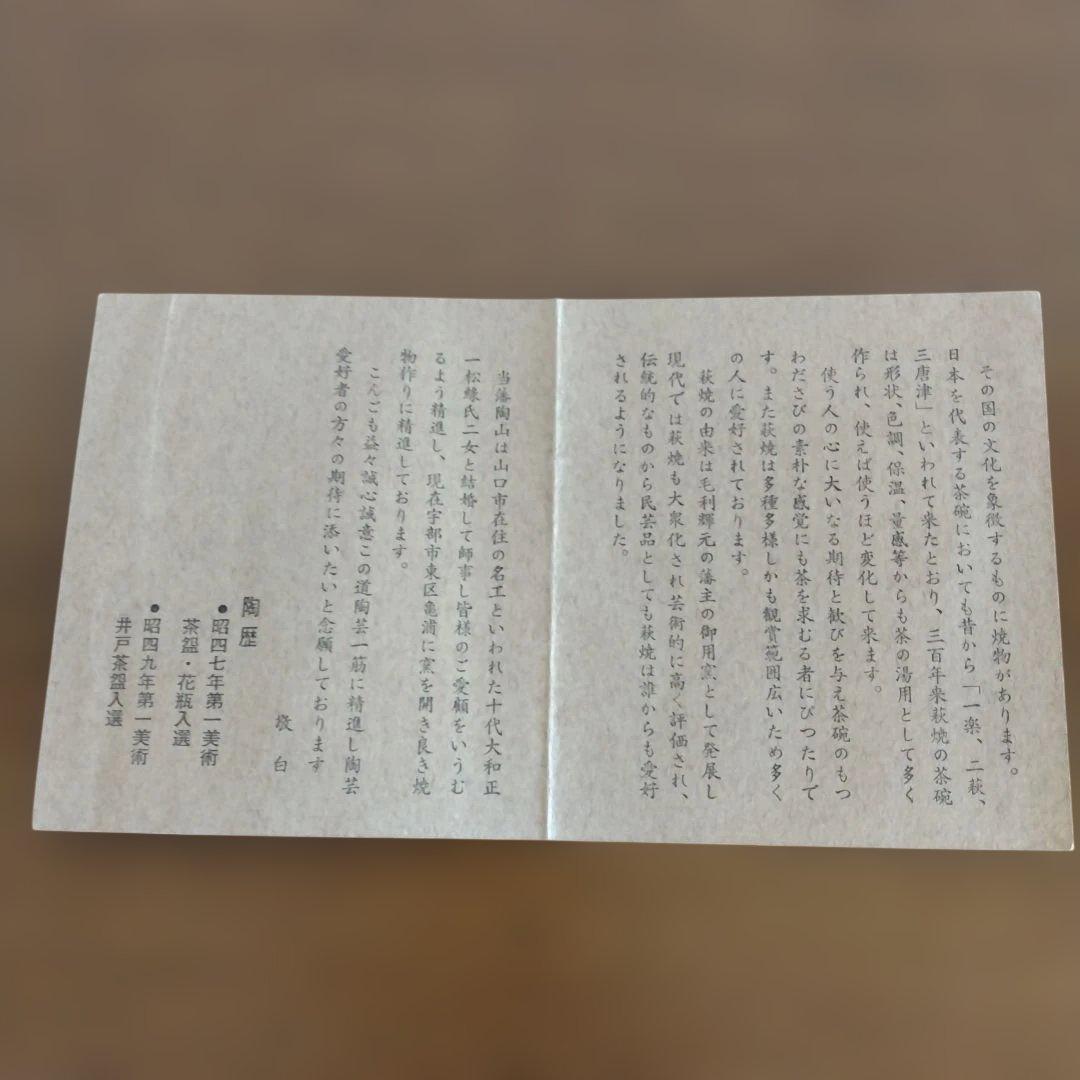 その国の文化を象徴するものに焼物があります。
日本を代表する茶碗においても昔から「一楽、二萩、
三唐津」といわれて来たとおり、三百年来萩焼の茶碗
は形状、色調、保温、量感等からも茶の湯用として多く
作られ、使えば使うほど変化して来ます。
使う人の心に大いなる期待と歓びを与え茶碗のもつ
わださびの素朴な感覚にも茶を求むる者にぴつたりで
す。また萩焼は多種多様しかも観賞範囲広いため多く
の人に愛好されております。
萩焼の由来は毛利輝元の藩主の御用窯として発展し
現代では萩焼も大衆化され芸術的に高く評価され、
伝統的なものから民芸品としても萩焼は誰からも愛好
されるようになりました。
当藩陶山は山口市在住の名工といわれた十代大和正
一松緑氏二女と結婚して師事し皆様のご愛顧をいうむ
るよう精進し、現在宇部市東区亀浦に窯を開き良き焼
物作りに精進しております。
こんごも益々誠心誠意この道陶芸一筋に精進し陶芸
愛好者の方々の期待に添いたいと念願しております
敬白
陶歴
●昭四七年第一美術
茶盌・花瓶入選
●昭四九年第一美術
井戸茶盌入選